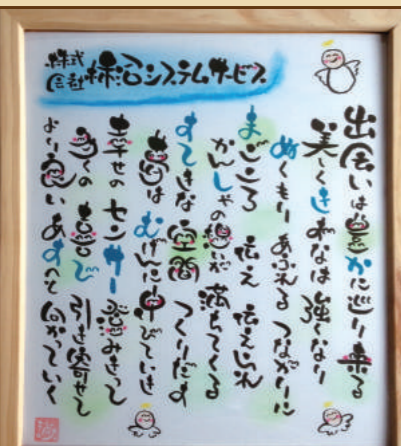 株式会社 柿沼システムサービス
出会いは豊かに巡り来る
美しくきずなは強くなり
ぬくもりあふれる つながりに
まごころ 伝え 伝えられ
かんしゃの想いが 満ちてくる
すてきな 空間 つくりだす
夢は むげんに 伸びていき
幸せの センサー 澄みきって
多くの 喜び 引き寄せて
より良い あすへと 向かっていく